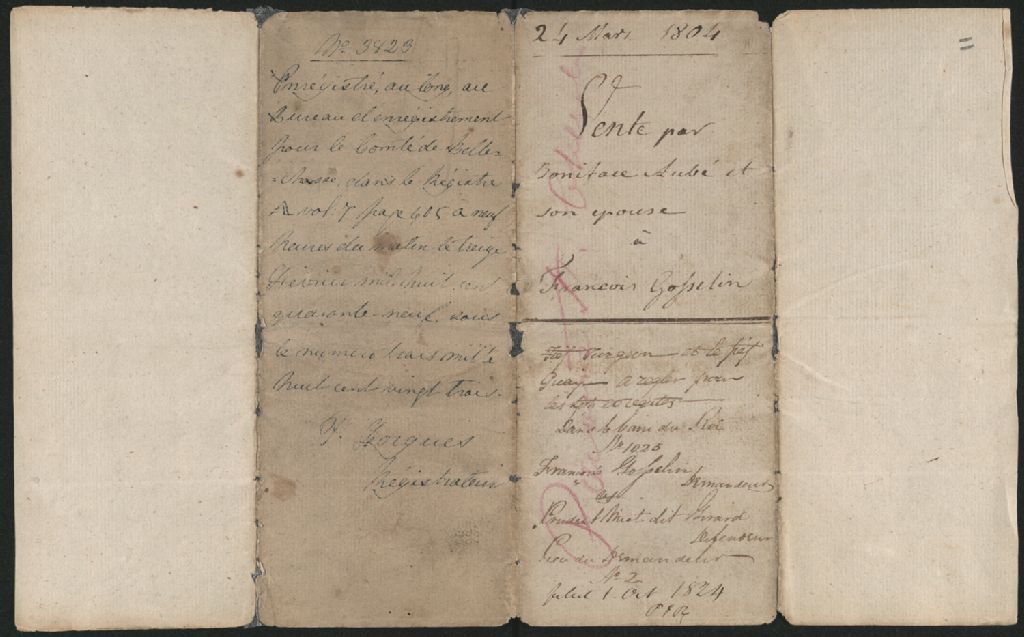 No 3823
Enrégistré, au long, au
Bureau d'enrégistrement
pour le Comté de Belle-
-Chasse, dans le Régistre
A vol. 7 page 605 à neuf
heures du matin le treize
Février mil huit cent
quarante-neuf sous
le numero trois mille
huit cent vingt trois.
Régistrateur
24 Mars 1804
Vente par
Boniface Aubé et
son epouse
à
Francois Gosselin
Turgeon et le
a regler pour
les
Dans le banc du Roi
No 1023
Francois Gosselin
Demandeur
vs
dit Girard
Defendeur
du Demandeur
No 2
1 Oct 1824